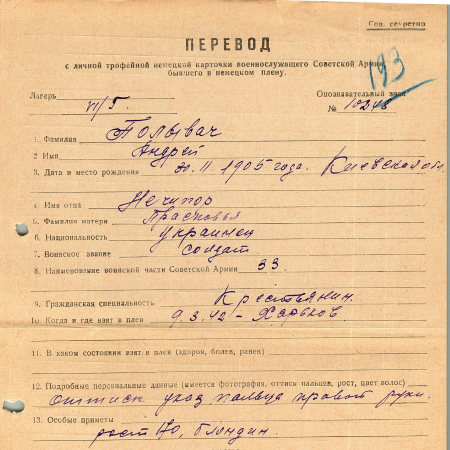 Сов. секретно
ПЕРЕВОД
с личной трофейной немецкой карточки военнослужащего Советской Армии,
бывшего в немецком плену.
193
Лагерь VI/Г. Опознавательный знак
№ 10248
1. Фамилия Полывач
2 Имя Андрей
3. Дата и место рождения 30.11.1905 года. Киевской обл.
4. Имя отца Нечипор
5. Фамилия матери Прасковья
6. Национальность украинец
7. Воинское звание солдат
8. Наименование воинской части Советской Армии 33.
9. Гражданская специальность Крестьянин.
10. Когда и где взят в плен 9.3.42 – Харьков.
11. В каком состоянии взят в плен (здоров, болен, ранен)
12. Подробные персональные данные (имеется фотография, оттиск пальцев, рост, цвет волос)
Оттиск указ пальца правой руки.
13. Особые приметы
рост 170, блондин.